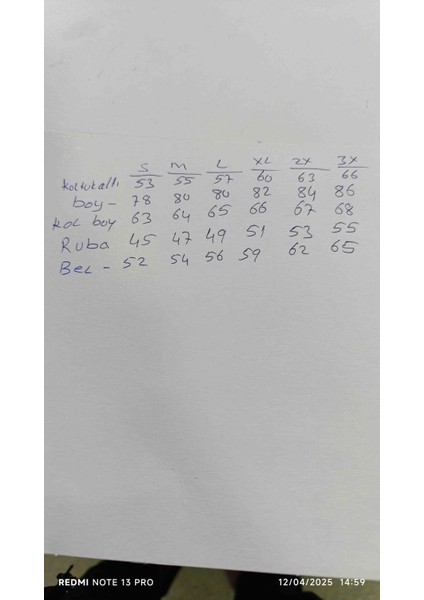 S M L XL 2X 3X
koltukaltı 53 55 57 60 63 66
boy - 78 80 80 82 84 86
kol boy 63 64 65 66 67 68
Ruba 45 47 49 51 53 55
Bel - 52 54 56 59 62 65
REDMI NOTE 13 PRO 12/04/2025 14:59